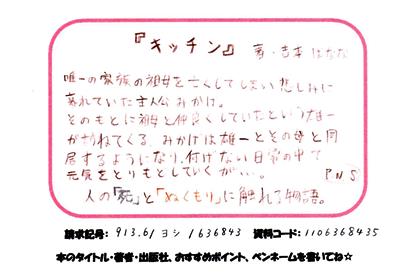 『キッチン』 著・吉本 ばなな
唯一の家族の祖母を亡くしてしまい悲しみに
暮れていた主人公みかげ。
そのもとに祖母と仲良くしていたという雄一
が訪ねてくる。みかげは雄一とその母と同
居するようになり、何げない日常の中で
元気をとりもどしていくが…。 P.N S
人の「死」と「ぬくもり」に触れる物語。
請求記号: 913.6/ヨシ/636843 資料コード: 1106368435
本のタイトル・著者・出版社、おすすめポイント、ペンネームを書いてね☆